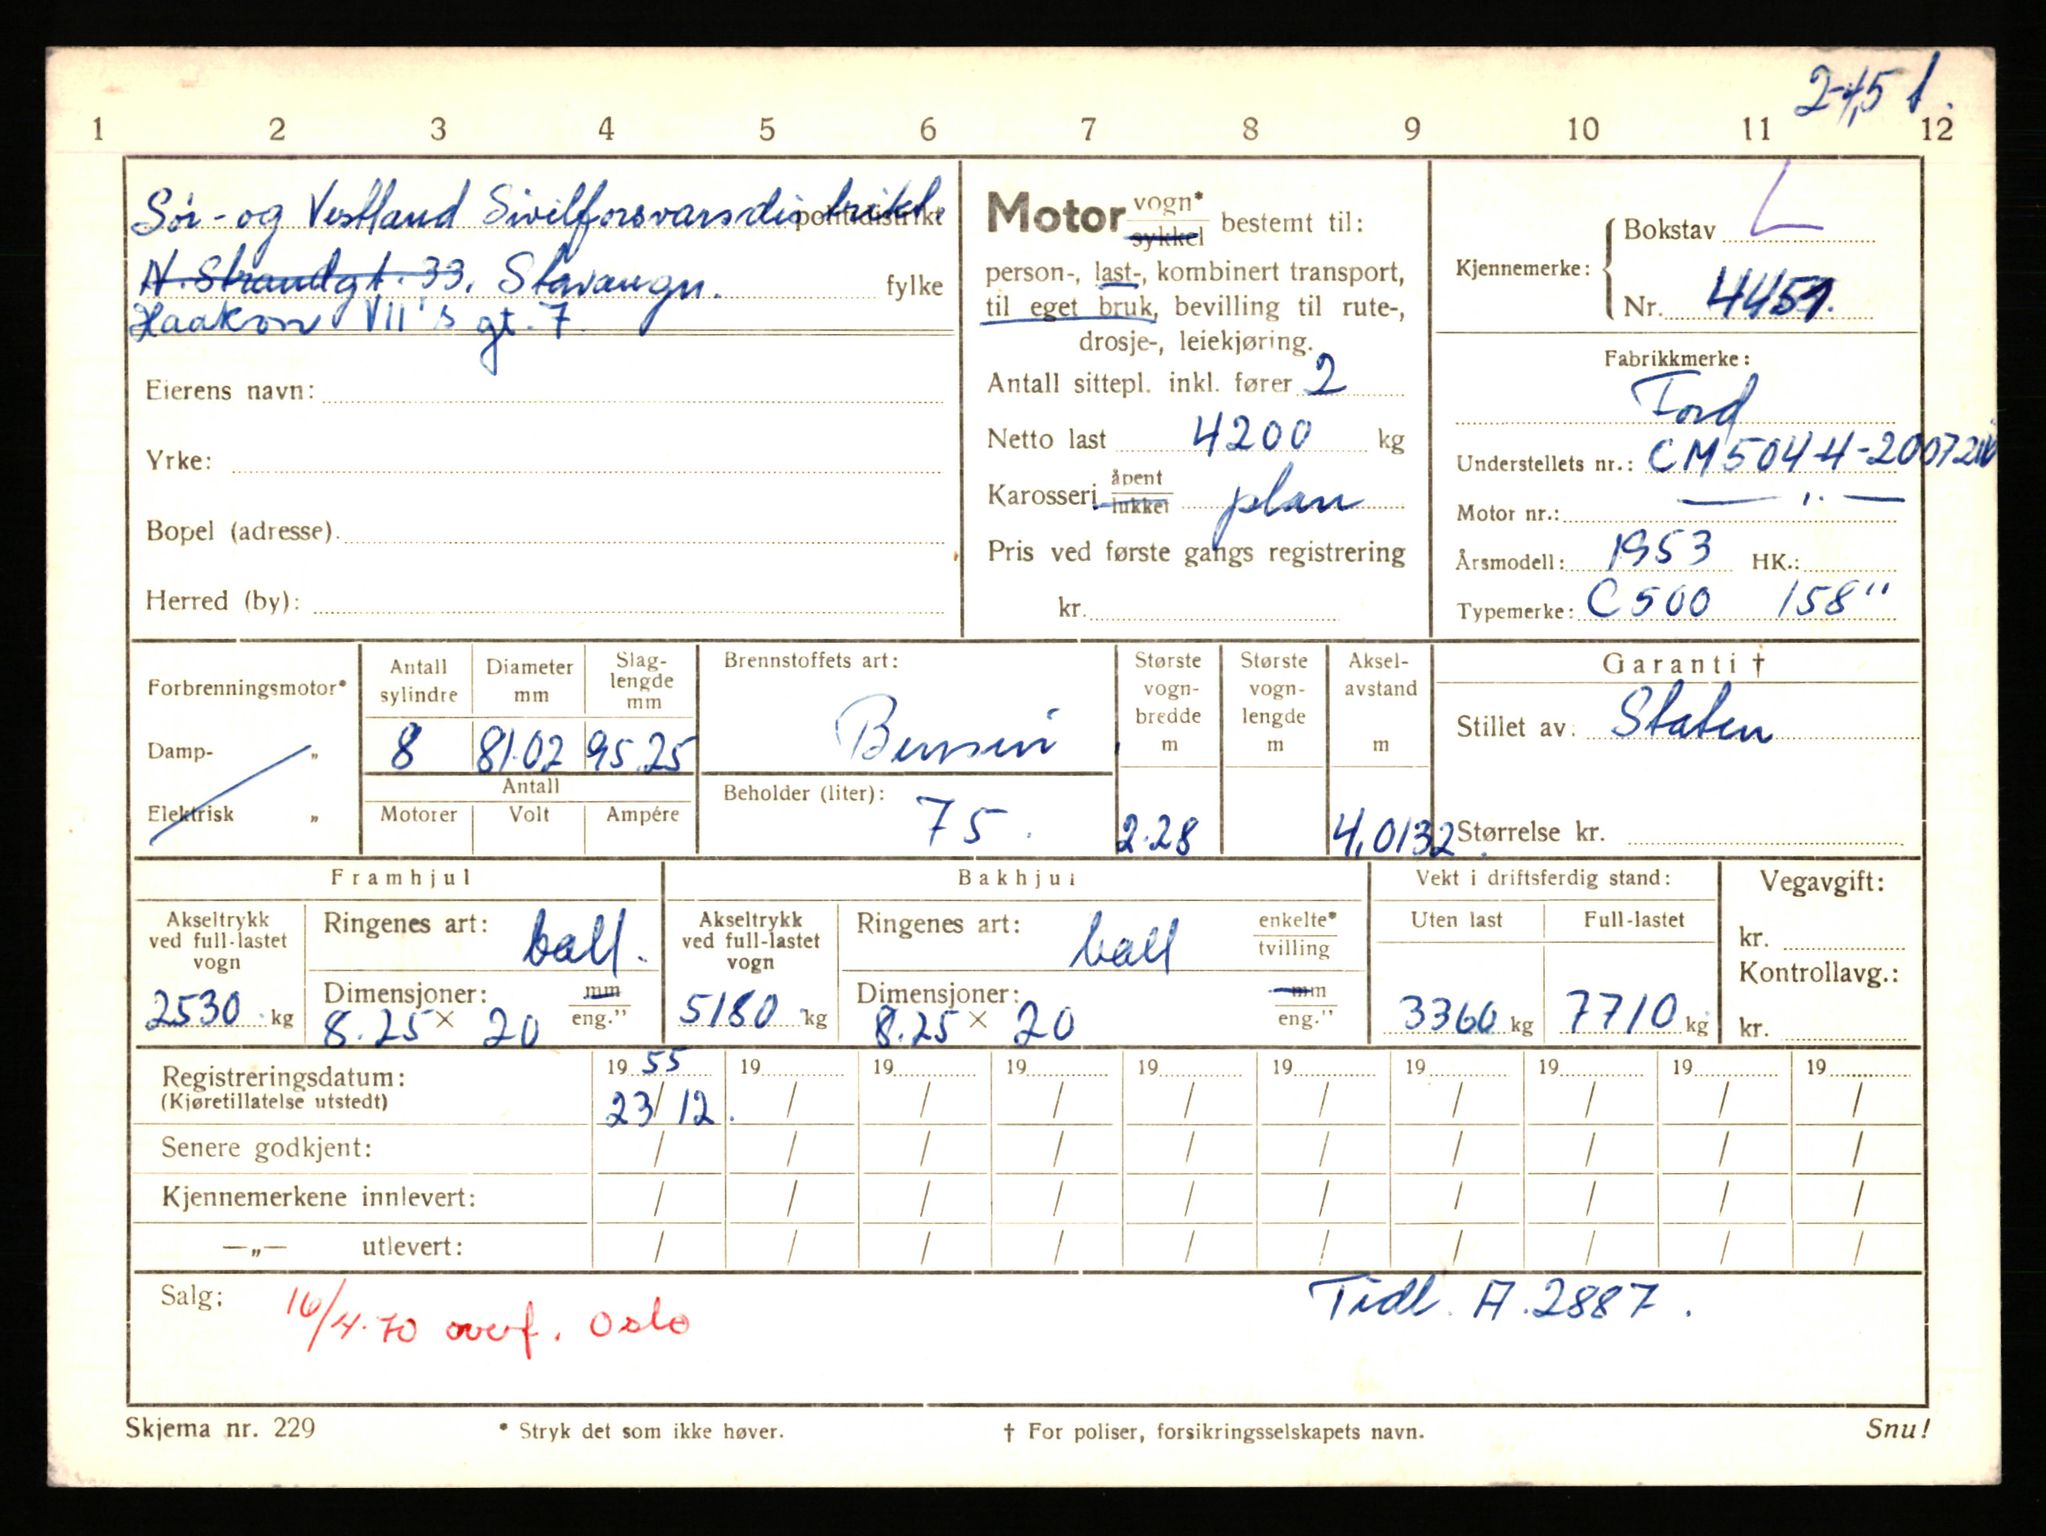 2-4,5 t.
1 2 3 4 5 6 7 8 9 10 11 12
Sør- og Vestland Sivilforsvarsdistrikt. politidistrikt
N. Strandgt. 33, Stavanger. fylke
Haakon VII's gt. 7.
Eierens navn:
Yrke:
Bopel (adresse).
Herred (by):
Motor vogn* sykkel bestemt til:
person-, last-, kombinert transport,
til eget bruk, bevilling til rute-,
drosje-, leiekjøring.
Antall sittepl. inkl. fører 2
Netto last 4200 kg
Karosseri åpent lukket plan
Pris ved første gangs registrering
kr.
Kjennemerke: Bokstav L
Nr. 4451.
Fabrikkmerke:
Ford
Understellets nr.: CM5044-
Motor nr.: — " —
Årsmodell: 1953 HK.:
Typemerke: C500 158"
Forbrenningsmotor*
Damp- "
Elektrisk "
Antall sylindre 8
Diameter mm 81.02
Slag-lengde mm 95.25
Antall
Motorer Volt Ampére
Brennstoffets art:
Bensin
Beholder (liter): 75.
Største vogn-bredde m 2.28
Største vogn-lengde m
Aksel-avstand m 4,0132.
Garanti †
Stillet av: Staten
Størrelse kr.
Framhjul
Akseltrykk ved full-lastet vogn 2530 kg
Ringenes art: ball.
Dimensjoner: mm eng."
8.25 × 20
Bakhjul
Akseltrykk ved full-lastet vogn 5180 kg
Ringenes art: ball enkelte* tvilling
Dimensjoner: mm eng."
8.25 × 20
Vekt i driftsferdig stand:
Uten last Full-lastet
3360 kg 7710 kg
Vegavgift:
kr.
Kontrollavg.:
kr.
Registreringsdatum: 19 55 19 19 19 19 19 19 19 19 19
(Kjøretillatelse utstedt) 23/12. / / / / / / / / /
Senere godkjent: / / / / / / / / / /
Kjennemerkene innlevert: / / / / / / / / / /
—„— utlevert: / / / / / / / / / /
Salg: 16/4-70 overf. Oslo
Tidl. A.2887.
Skjema nr. 229 * Stryk det som ikke høver. † For poliser, forsikringsselskapets navn. Snu!